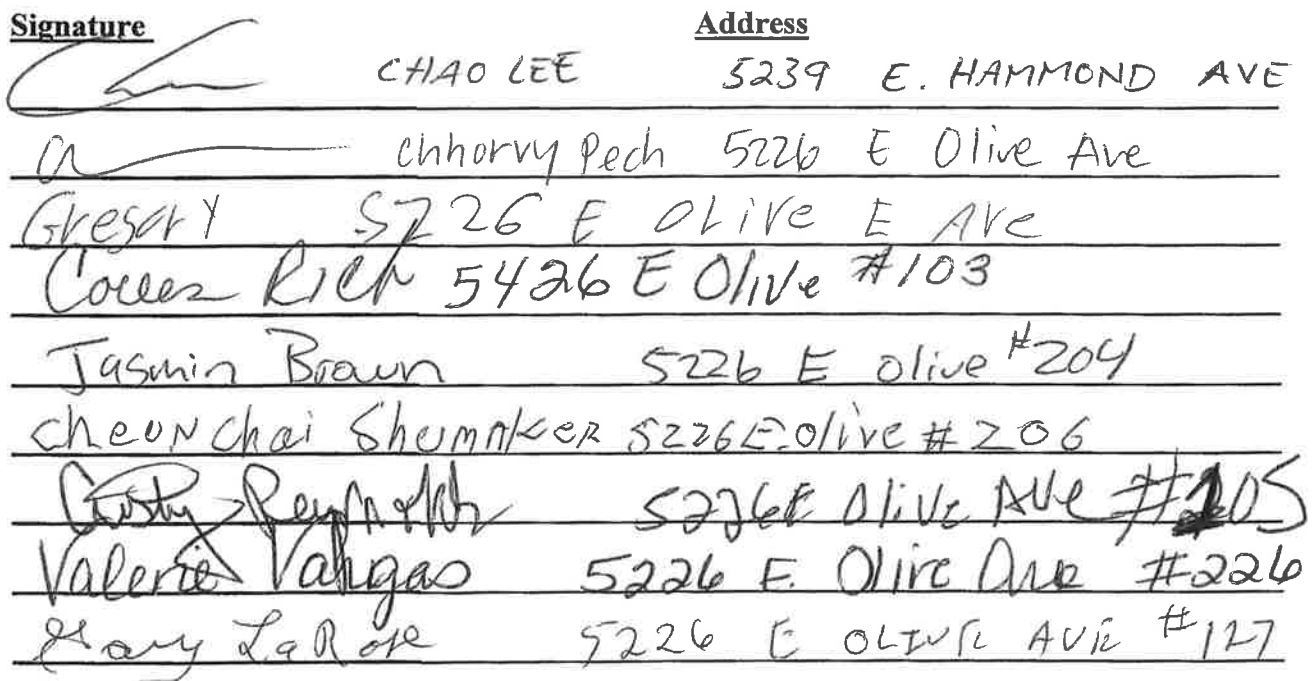 Signature Address
CHAO LEE 5239 E. HAMMOND AVE
Chhorvy Pech 5226 E Olive Ave
Gregory 5226 E OLiVe E AVe
Rich 5426 E Olive #103
Jasmin Brown 5226 E olive #204
cheonchai Shumaker 5226 E. olive # 206
Cristy Reynolds 5226 E Olive Ave #205
Valerie Vargas 5226 E. Olive Ave #226
Mary LaRose 5226 E OLIVE AVE #127